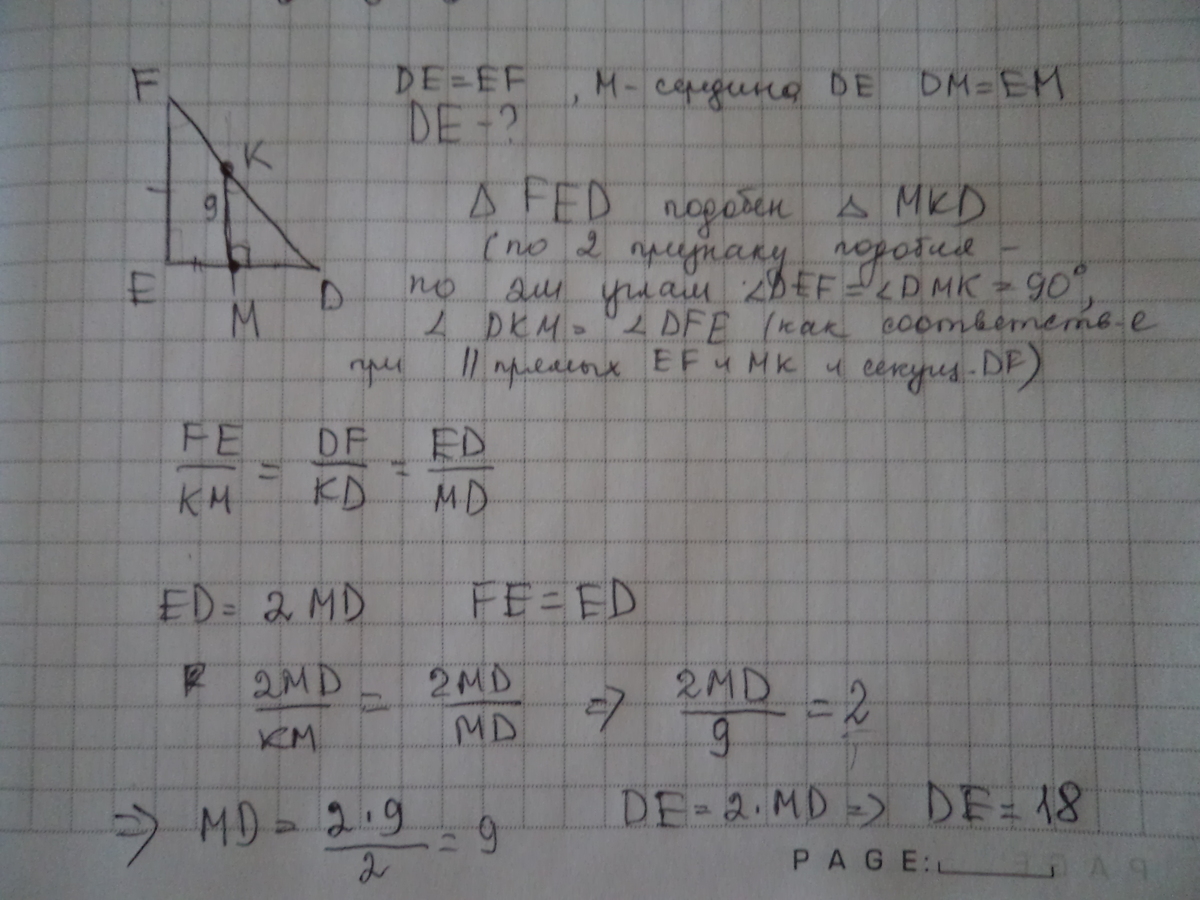 F
K
9
E
M
D
DE = EF , M - середина DE DM = EM
DE - ?
Δ FED подобен Δ MKD
(по 2 признаку подобия -
по 2м углам ∠DEF = ∠DMK = 90°,
∠ DKM = ∠DFE (как соответств-е
при || прямых EF и MK и секущ. DF)
FE/KM = DF/KD = ED/MD
ED = 2 MD FE = ED
2MD/KM = 2MD/MD => 2MD/9 = 2
=> MD = 2·9/2 = 9 DE = 2·MD => DE = 18
PAGE: